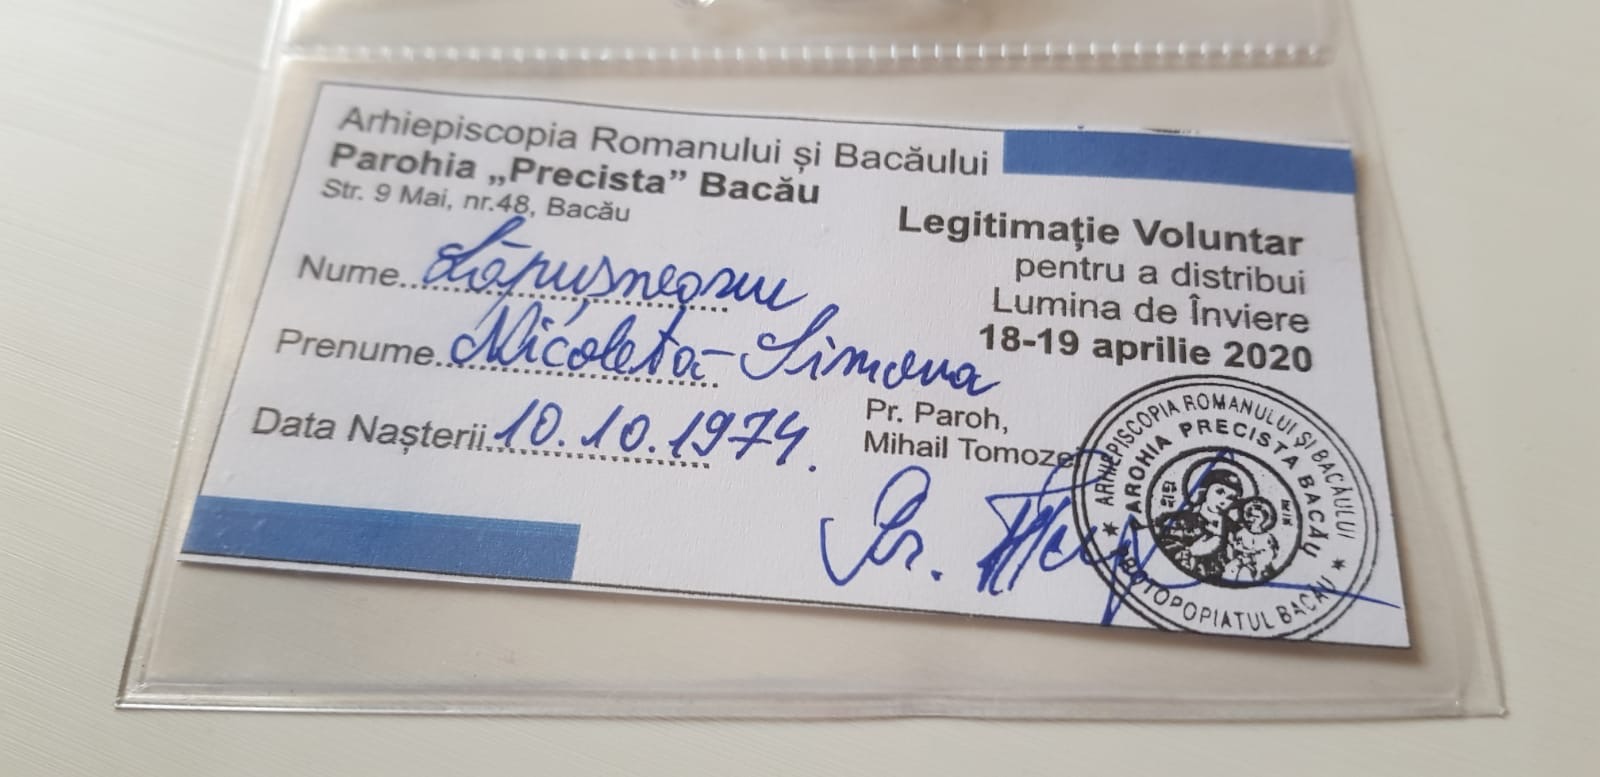 Arhiepiscopia Romanului și Bacăului
Parohia „Precista” Bacău
Str. 9 Mai, nr.48, Bacău
Legitimație Voluntar
pentru a distribui
Lumina de Înviere
18-19 aprilie 2020
Nume..Lăpușneanu
Prenume..Nicoleta-Simona
Data Nașterii..10.10.1974.
Pr. Paroh,
Mihail Tomoze
Pr.
★ ARHIEPISCOPIA ROMANULUI ȘI BACĂULUI ★
PROTOPOPIATUL BACĂU
PAROHIA PRECISTA BACĂU